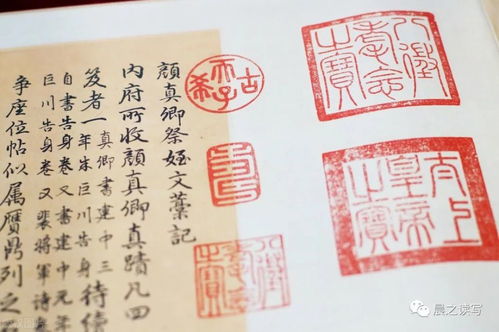 八徵耄念之寶
太上皇帝之寶
古稀天子
壽
八徵耄念之寶
顏真卿祭姪文藁記
內府所收顏真卿真蹟凡四
笈者一真卿書建中三年朱巨川告身待續
自書告身卷又書建中元年
巨川告身卷又裴將軍詩
爭座位帖似属贋鼎列之
晨之读写